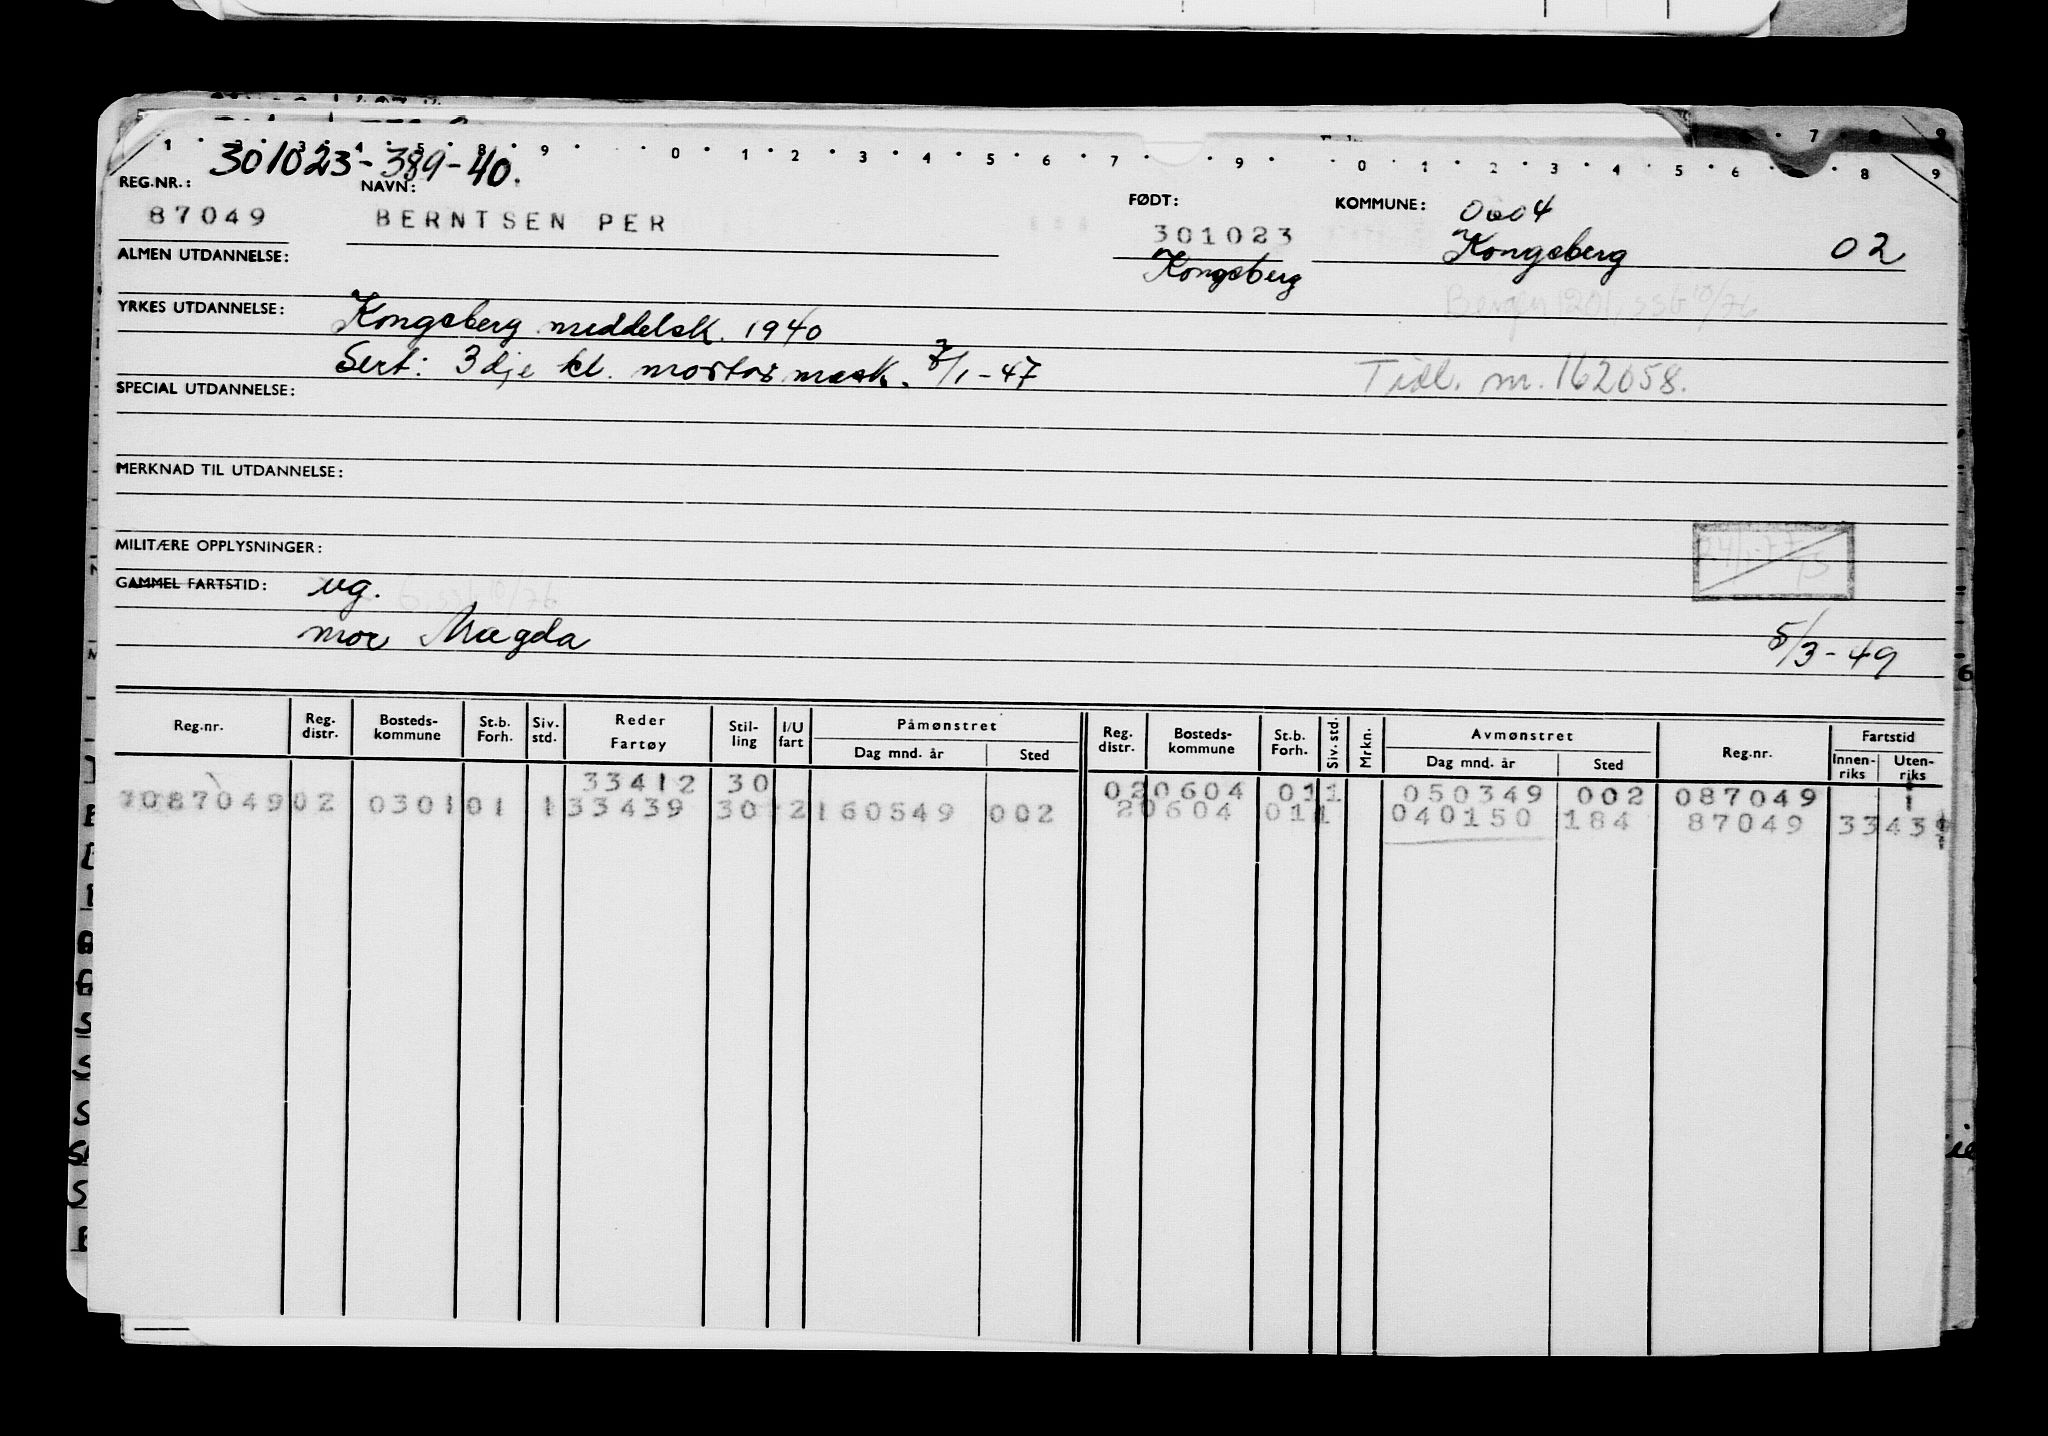 301023-389-40.
REG.NR.: NAVN: FØDT: KOMMUNE: 0604
87049 BERNTSEN PER 301023 Kongsberg 02
ALMEN UTDANNELSE: Kongsberg
YRKES UTDANNELSE: Kongsberg middelsk. 1940
Sert: 3dje kl. motor mask. 7/1-47 Tidl. nr. 162058.
SPECIAL UTDANNELSE:
MERKNAD TIL UTDANNELSE:
MILITÆRE OPPLYSNINGER:
GAMMEL FARTSTID: ug.
mor Magda 5/3-49
Reg.nr. Reg. distr. Bosteds-kommune St.b. Forh. Siv. std. Reder Fartøy Stil-ling I/U fart Påmønstret Dag mnd. år Sted Reg. distr. Bosteds-kommune St.b. Forh. Siv. std. Mrkn. Avmønstret Dag mnd. år Sted Reg.nr. Fartstid Innen-riks Uten-riks
33412 30 020604 011 050349 002 087049 1
087049 02 0301 01 1 33439 30 2 160549 002 20604 011 040150 184 87049 33439